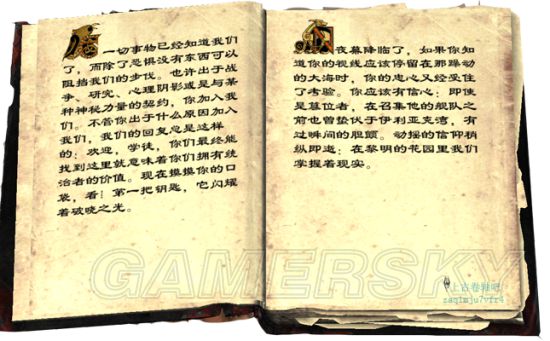 一切事物已经知道我们
了，而除了恐惧没有东西可以
阻挡我们的步伐。也许出于战
争、研究、心理阴影或是与某
种神秘力量的契约，你加入我
们。不管你出于什么原因加入
我们，我们的回复总是这样
的：欢迎，学徒，你们最终能
找到这里就意味着你们拥有统
治者的价值。现在摸摸你的口
袋，看！第一把钥匙，它闪耀
着破晓之光。
夜幕降临了，如果你知
道你的视线应该停留在那躁动
的大海时，你的忠心又经受住
了考验。你应该有信心：即使
是篡位者，在召集他的舰队之
前也曾蛰伏于伊利亚克湾，有
过瞬间的胆颤。动摇的信仰稍
纵即逝：在黎明的花园里我们
掌握着现实。
GAMERSKY
上古卷轴吧
zaqimju7vfr4